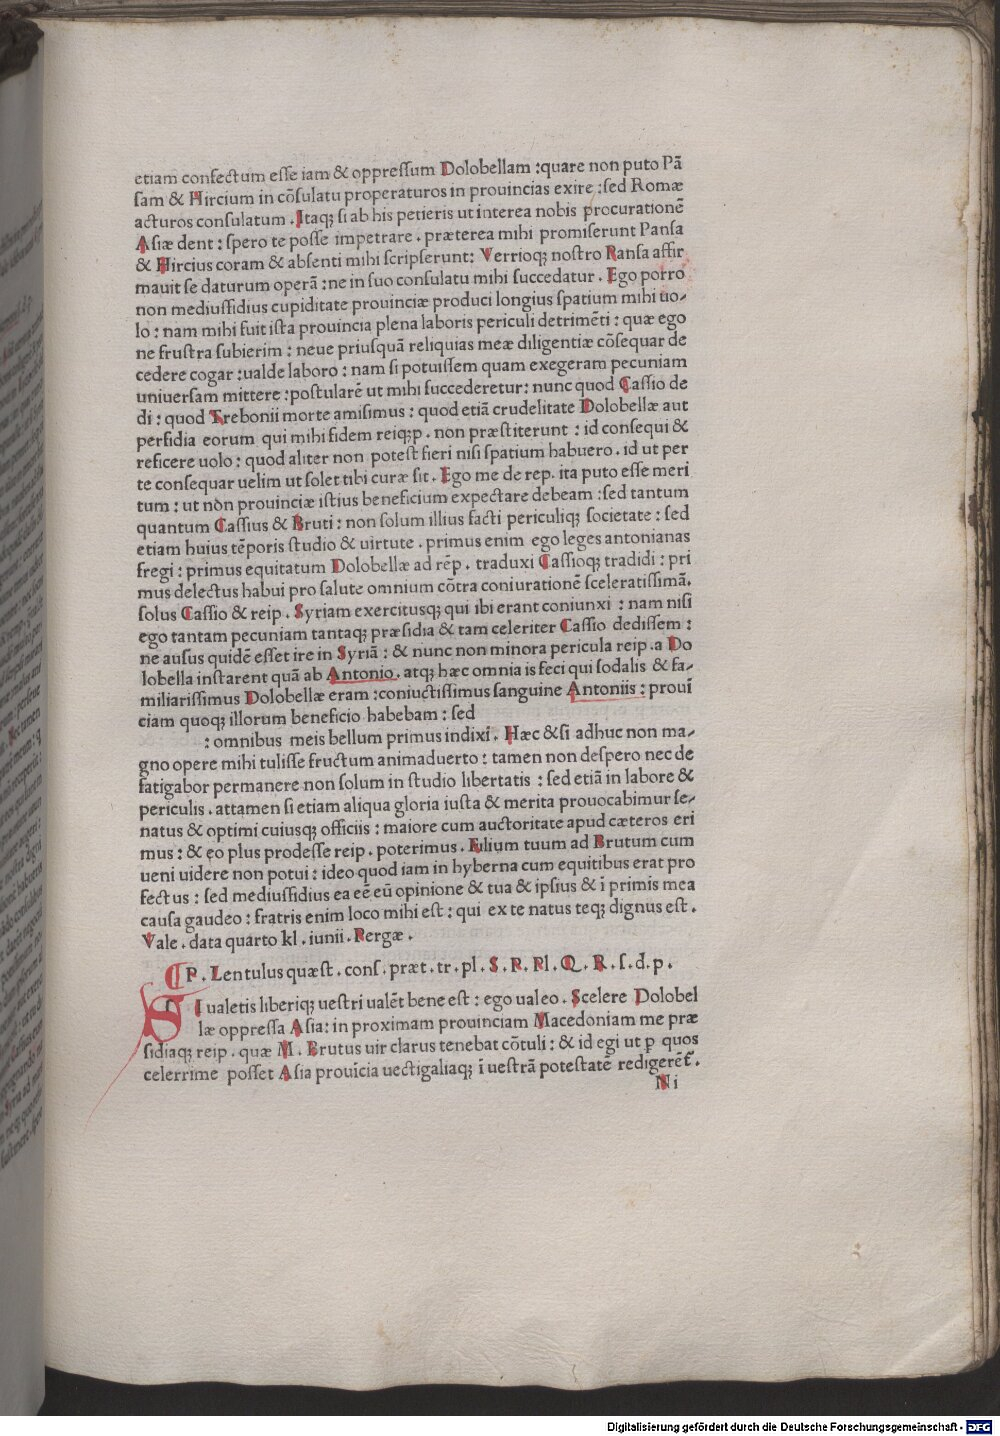 etiam confectum esse iam & oppressum Dolobellam : quare non puto Pã
sam & Hircium in cõsulatu properaturos in prouincias exire : sed Romæ
acturos consulatum . Itaqꝫ si ab his petieris ut interea nobis procurationẽ
Asiæ dent : spero te posse impetrare . præterea mihi promiserunt Pansa
& Hircius coram & absenti mihi scripserunt: Verrioqꝫ nostro Pansa affir
mauit se daturum operã : ne in suo consulatu mihi succedatur . Ego porro
non mediussidius cupiditate prouinciæ produci longius spatium mihi uo-
lo : nam mihi fuit ista prouincia plena laboris periculi detrimẽti : quæ ego
ne frustra subierim : neue priusquã reliquias meæ diligentiæ cõsequar de
cedere cogar : ualde laboro : nam si potuissem quam exegeram pecuniam
uniuersam mittere : postularẽ ut mihi succederetur : nunc quod Cassio de
di : quod Trebonii morte amisimus : quod etiã crudelitate Dolobellæ aut
perfidia eorum qui mihi fidem reiqꝫp . non præstiterunt : id consequi &
reficere uolo : quod aliter non potest fieri nisi spatium habuero . id ut per
te consequar uelim ut solet tibi curæ sit . Ego me de rep . ita puto esse meri
tum : ut non prouinciæ istius beneficium expectare debeam : sed tantum
quantum Cassius & Bruti : non solum illius facti periculiqꝫ societate : sed
etiam huius tẽporis studio & uirtute . primus enim ego leges antonianas
fregi : primus equitatum Dolobellæ ad rẽp . traduxi Cassioqꝫ tradidi : pri
mus delectus habui pro salute omnium cõtra coniurationẽ sceleratissimã .
solus Cassio & reip . Syriam exercitusqꝫ qui ibi erant coniunxi : nam nisi
ego tantam pecuniam tantaqꝫ præsidia & tam celeriter Cassio dedissem :
ne ausus quidẽ esset ire in Syriã : & nunc non minora pericula reip . a Do
lobella instarent quã ab Antonio . atqꝫ hæc omnia is feci qui sodalis & fa-
miliarissimus Dolobellæ eram : coniuctissimus sanguine Antoniis : prouĩ
ciam quoqꝫ illorum beneficio habebam : sed
: omnibus meis bellum primus indixi . Hæc & si adhuc non ma-
gno opere mihi tulisse fructum animaduerto : tamen non despero nec de
fatigabor permanere non solum in studio libertatis : sed etiã in labore &
periculis . attamen si etiam aliqua gloria iusta & merita prouocabimur se-
natus & optimi cuiusqꝫ officiis : maiore cum auctoritate apud cæteros eri
mus : & eo plus prodesse reip . poterimus . Filium tuum ad Brutum cum
ueni uidere non potui : ideo quod iam in hyberna cum equitibus erat pro
fectus : sed mediussidius ea eẽ eũ opinione & tua & ipsius & ĩ primis mea
causa gaudeo : fratris enim loco mihi est : qui ex te natus teqꝫ dignus est .
Vale . data quarto kl . iunii . Pergæ .
P . Lentulus quæst . cons . præt . tr . pl . S . P . Pl . Q . R . s . d . p .
SI ualetis liberiqꝫ uestri ualẽt bene est : ego ualeo . Scelere Dolobel
læ oppressa Asia : in proximam prouinciam Macedoniam me præ
sidiaqꝫ reip . quæ M . Brutus uir clarus tenebat cõtuli : & id egi ut ꝑ quos
celerrime posset Asia prouĩcia uectigaliaqꝫ ĩ uestrã potestatẽ redigerẽt .
Ni
Digitalisierung gefördert durch die Deutsche Forschungsgemeinschaft - DFG